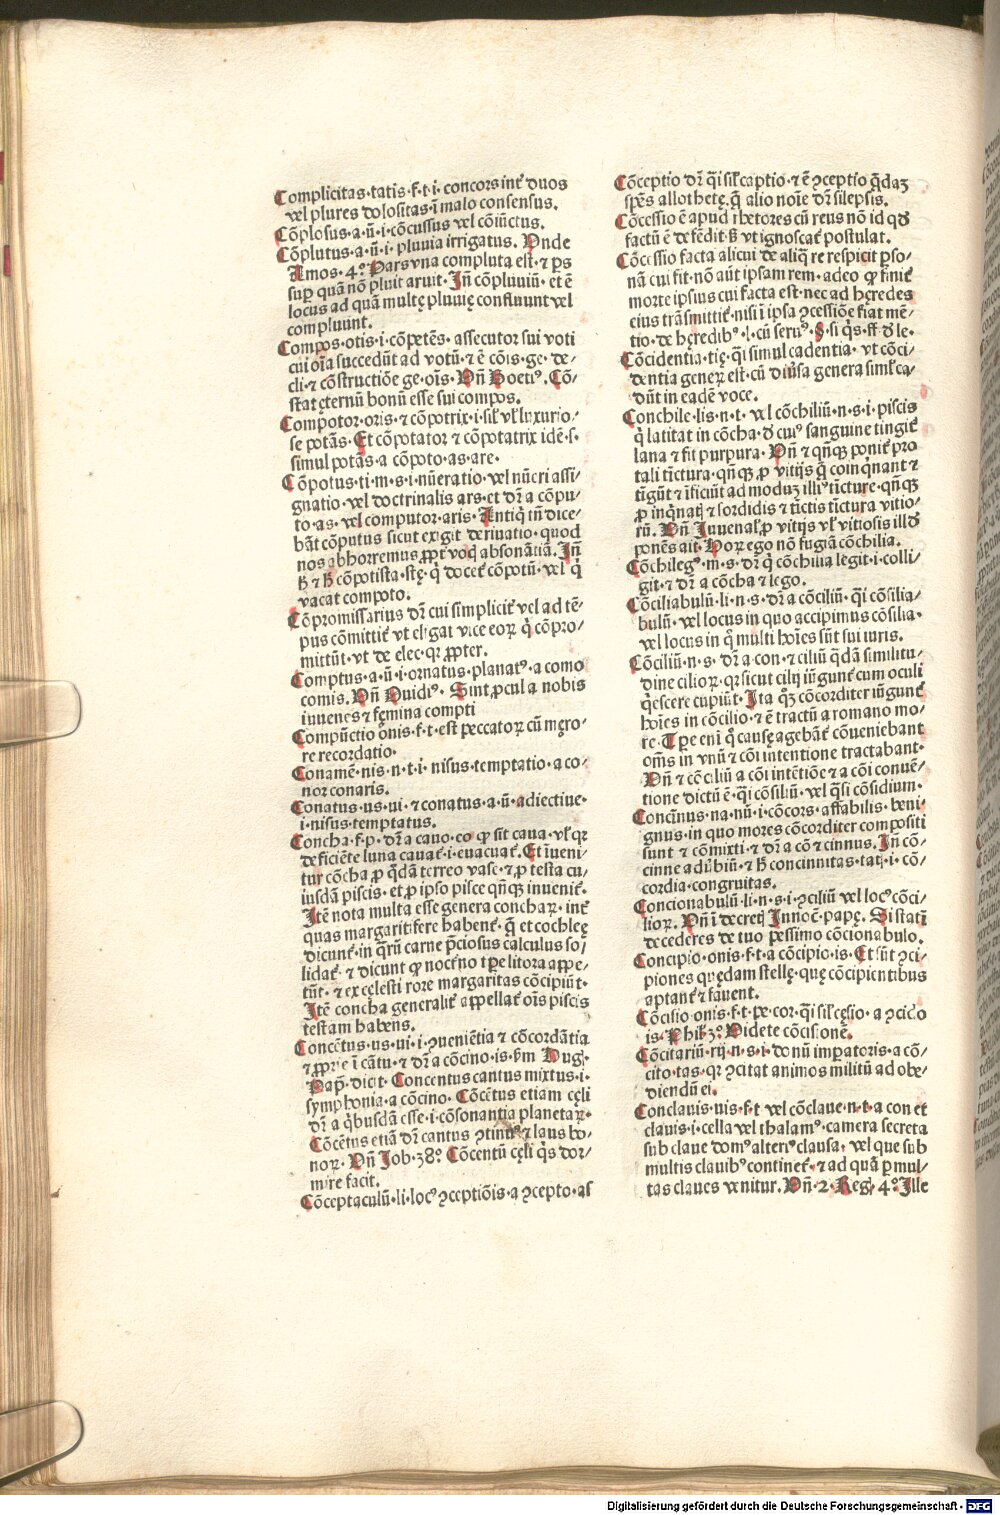 Complicitas·tatis·f·t·i·concors int̃ duos
vel plures dolositas·ĩ malo consensus.
Cõplosus·a·ũ·i·cõcussus vel cõiũctus.
Cõplutus·a·ũ·i·pluuia irrigatus. Vnde
Amos·4º Pars vna compluta est·⁊ ꝑs
suꝑ quã nõ pluit aruit·Iñ cõpluuiũ·et ẽ
locus ad quã multę pluuię confluunt vel
compluunt.
Compos·otis·i·cõpetẽs·assecutor sui voti
cui oĩa succedũt ad votũ·⁊ ẽ cõis·ge·de-
cli·⁊ cõstructiõe ge·oĩs·Vñ Boeti⁹.Cõ-
stat ęternũ bonũ esse sui compos.
Compotor·oris·⁊ cõpotrix·i·sil̃ vl̃ luxurio-
se potãs·Et cõpotator ⁊ cõpotatrix idẽ·s·
simul potãs·a cõpoto·as·are·
Cõpotus·ti·m·s·i·nũeratio·vel nũeri assi-
gnatio·vel doctrinalis ars·et dr̃ a cõpu-
to·as·vel computor·aris·Antiq̃ iñ dice-
bãt cõputus sicut exigit deriuatio·quod
nos abhorremus ꝓpt̃ voq̃ absonãtiã·Iñ
h̃ ⁊ h̃ cõpotista·stę·q̃ docet̃ cõpotũ·vel q̃
vacat compoto.
Cõpromissarius dr̃ cui simplicit̃ vel ad tẽ-
pus cõmittit̃ vt eligat vice eoꝝ q̃ cõpro-
mittũt·vt de elec·qꝛ ꝓpter.
Comptus·a·ũ·i·ornatus·planat⁹·a como
comis·Vñ Ouidi⁹·Sint ꝓcul a nobis
iuuenes ut fęmina compti
Compũctio õnis·f·t·est peccatoꝝ cũ męro-
re recordatio·
Conamẽ·nis·n·t·i·nisus·temptatio·a co-
nor conaris.
Conatus·us·ui·⁊ conatus·a·ũ·adiectiue·
i·nisus·temptatus.
Concha·f·p·dr̃ a cauo·eo ꝙ sit caua·vl̃ qꝛ
deficiẽte luna cauat̃·i·euacuat̃·Et ĩueni-
tur cõcha ꝓ q̃dã terreo vase·⁊ ꝓ testa cu-
iusdã piscis·et ꝓ ipso pisce qñqꝫ inuenit̃·
Itẽ nota multa esse genera conchaꝝ·int̃
quas margaritifere habent̃·q̃ et cochleę
dicunt̃·in qr̃ũ carne p̃ciosus calculus so-
lidat̃·⁊ dicunt ꝙ nocẽ no tꝑe litora appe-
tũt·⁊ ex celesti rore margaritas cõcipiũt·
Itẽ concha generalit̃ appellat̃ oĩs piscis
testam habens.
Concẽtus·us·ui·i·ꝯueniẽtia ⁊ cõcordãtia
⁊ ꝓprie ĩ cãtu·⁊ dr̃ a cõcino·is·ẜm Hug·
Pap̃·dicit·Concentus cantus mixtus·i·
symphonia·a cõcino·Cõcẽtus etiam cęli
dr̃ a q̃busdã esse·i·cõsonantia planetaꝝ·
Cõcẽtus etiã dr̃ cantus ꝯtinu⁹ ⁊ laus bo-
noꝝ·Vñ Job·38º Cõcentũ cęli q̃s dor-
mire facit.
Cõceptaculũ·li·loc⁹ ꝯceptiõis·a ꝯcepto·as
Cõceptio dr̃ q̃i sil̃ captio·⁊ ẽ ꝯceptio q̃daꝫ
spẽs allothetę·q̃ alio noĩe dr̃ silepsis.
Cõcessio ẽ apud rhetores cũ reus nõ id qd̃
factũ ẽ defẽdit·ß vt ignoscat̃ postulat.
Cõcessio facta alicui de aliq̃ re respicit ꝑso-
nã cui fit·nõ aũt ipsam rem·adeo ꝙ finit̃
morte ipsius cui facta est·nec ad hęredes
eius trãsmittit̃·nisi ĩ ipsa ꝯcessiõe fiat mẽ-
tio·de hęredib⁹·l·cũ seru⁹·§·si q̃s·ff·d̃ le·
Cõcidentia·tię·q̃i simul cadentia·vt cõci-
dentia geneꝝ est·cũ diũsa genera simĺ ca-
dũt in eadẽ voce.
Conchile·lis·n·t·vel cõchiliũ·n·s·i·piscis
q̃ latitat in cõcha·d̃ cui⁹ sanguine tingit̃
lana ⁊ fit purpura·Vñ ⁊ qñqꝫ ponit̃ pro
tali tĩctura·qñqꝫ ꝓ vitijs q̃ coinq̃nant ⁊
tigũt ⁊ ĩficiũt ad moduꝫ illi⁹ tĩcture·qñqꝫ
ꝓ inq̃natĩ ⁊ sordidis ⁊ tĩctis tĩctura vitio-
rũ·Vñ Juuenal̃ ꝓ vitijs vl̃ vitiosis illd̃
ponẽs ait·Hoꝝ ego nõ fugiã cõchilia.
Cõchileg⁹·m·s·dr̃ q̃ cõchilia legit·i·colli-
git·⁊ dr̃ a cõcha ⁊ lego.
Cõciliabulũ·li·n·s·dr̃ a cõciliũ·q̃i cõsilia-
bulũ·vel locus in quo accipimus cõsilia·
vel locus in q̃ multi hoĩes sũt sui iuris.
Cõciliũ·n·s·dr̃ a con·⁊ ciliũ q̃dã similitu-
dine cilioꝝ·qꝛ sicut cilij iũgunt̃ cum oculi
q̃escere cupiũt·Ita q̃ꝫ cõcorditer iũgunt̃
hoĩes in cõcilio·⁊ ẽ tractũ a romano mo-
re·Tꝑe eni q̃ causę agebãt̃ cõueniebant
om̃s in vnũ ⁊ cõi intentione tractabant·
Vñ ⁊ cõciliũ a cõi intẽtiõe ⁊ a cõi conuẽ-
tione dictũ ẽ·q̃i cõsiliũ·vel q̃si cõsidium·
Concĩnus·na·nũ·i·cõcors·affabilis·beni-
gnus·in quo mores cõcorditer compositi
sunt ⁊ cõmixti·⁊ dr̃ a cõ ⁊ cinnus.Iñ cõ-
cinne aduerbiũ·⁊ h̃ concinnitas·tatĩ·i·cõ-
cordia·congruitas.
Concionabulũ·li·n·s·i·ꝯciliũ vel loc⁹ cõci-
lioꝝ·Vñ ĩ decretĩ Innocẽ·papę·Si statĩ
decederes de tuo pessimo cõcionabulo.
Concipio·onis·f·t·a cõcipio·is·Et sũt ꝯci-
piones quędam stellę·quę cõcipientibus
aptant̃ ⁊ fauent.
Cõcisio·onis·f·t·pe·cor·q̃i sil̃ cęsio·a ꝯcido
is·Phil·3º Videte cõcisionẽ.
Cõcitariũ·rij·n·s·i·donũ imꝑatoris·a cõ-
cito·tas·qꝛ ꝯcitat animos militũ ad obe-
diendũ ei.
Conclauis·uis·f·t vel cõclaue·n·t·a con et
clauis·i·cella vel thalam⁹·camera secreta
sub claue dom⁹ alteri⁹ clausa·vel que sub
multis clauib⁹ continet̃·⁊ ad quã ꝑ mul-
tas claues venitur.Vñ·2·Reg·4º Ille
Digitalisierung gefördert durch die Deutsche Forschungsgemeinschaft · DFG